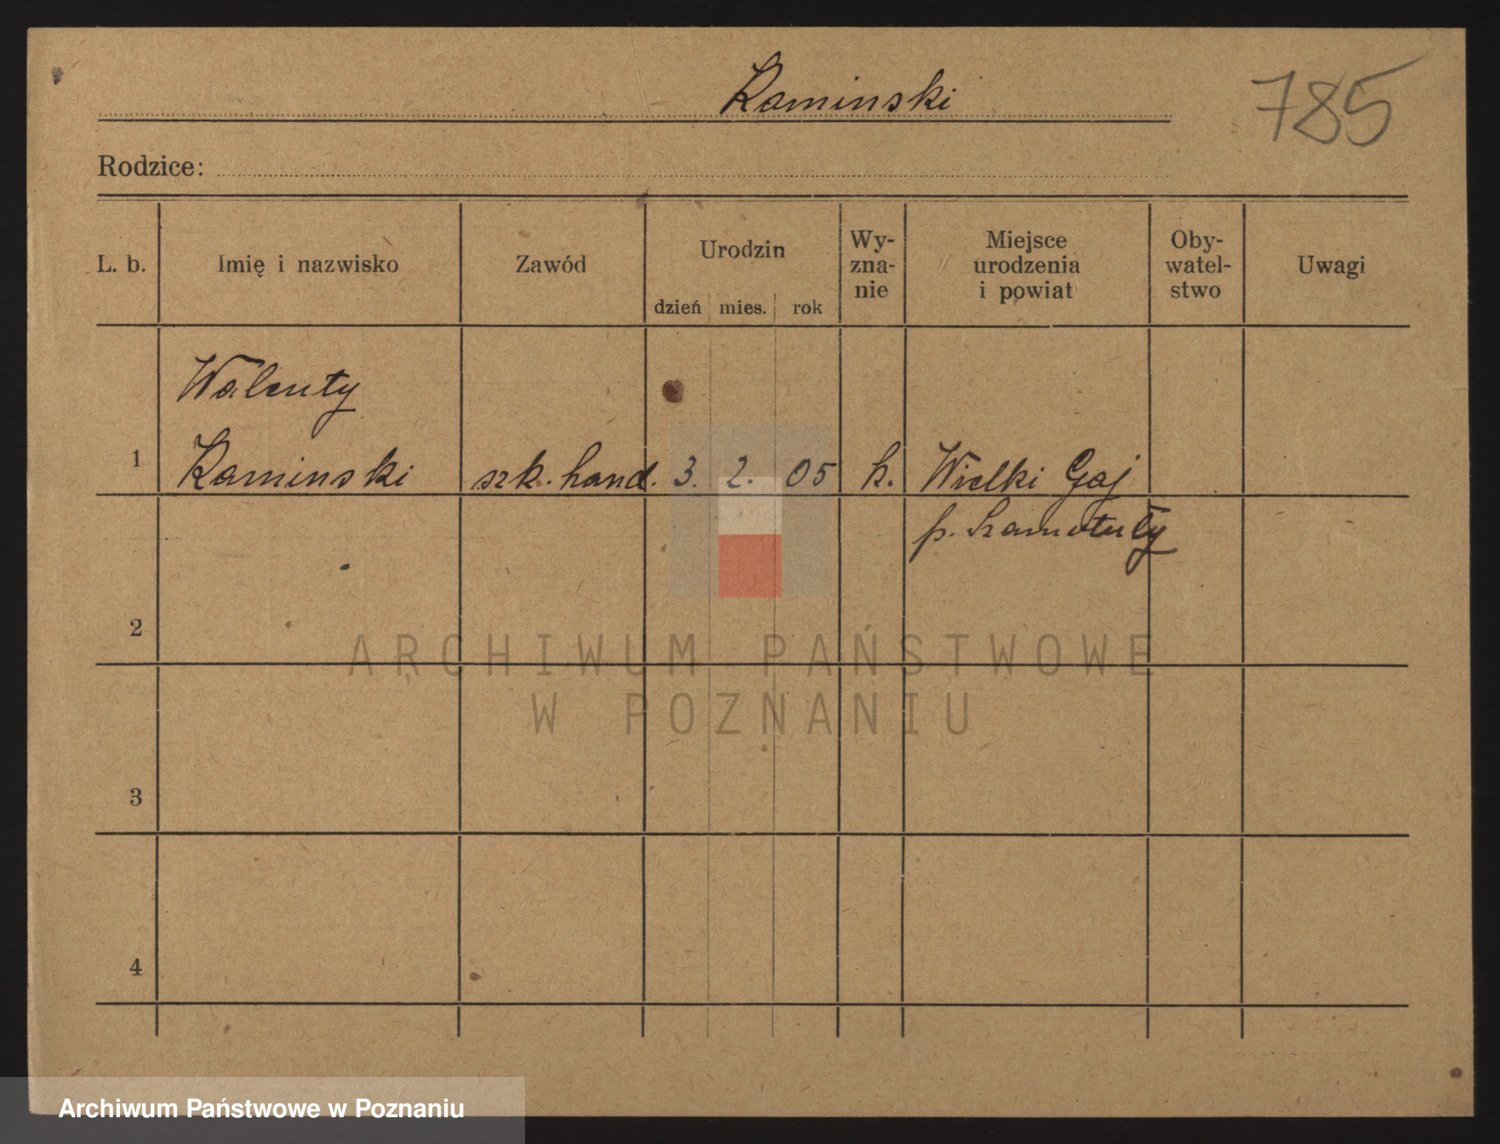 Kaminski
785
Rodzice:
L. b. Imię i nazwisko Zawód Urodzin dzień mies. rok Wy-zna-nie Miejsce urodzenia i powiat Oby-watel-stwo Uwagi
Walenty
1 Kaminski szk. hand. 3. 2. 05 k. Wielki Gaj
p. Szamotuły
2
ARCHIWUM PAŃSTWOWE
W POZNANIU
3
4
Archiwum Państwowe w Poznaniu